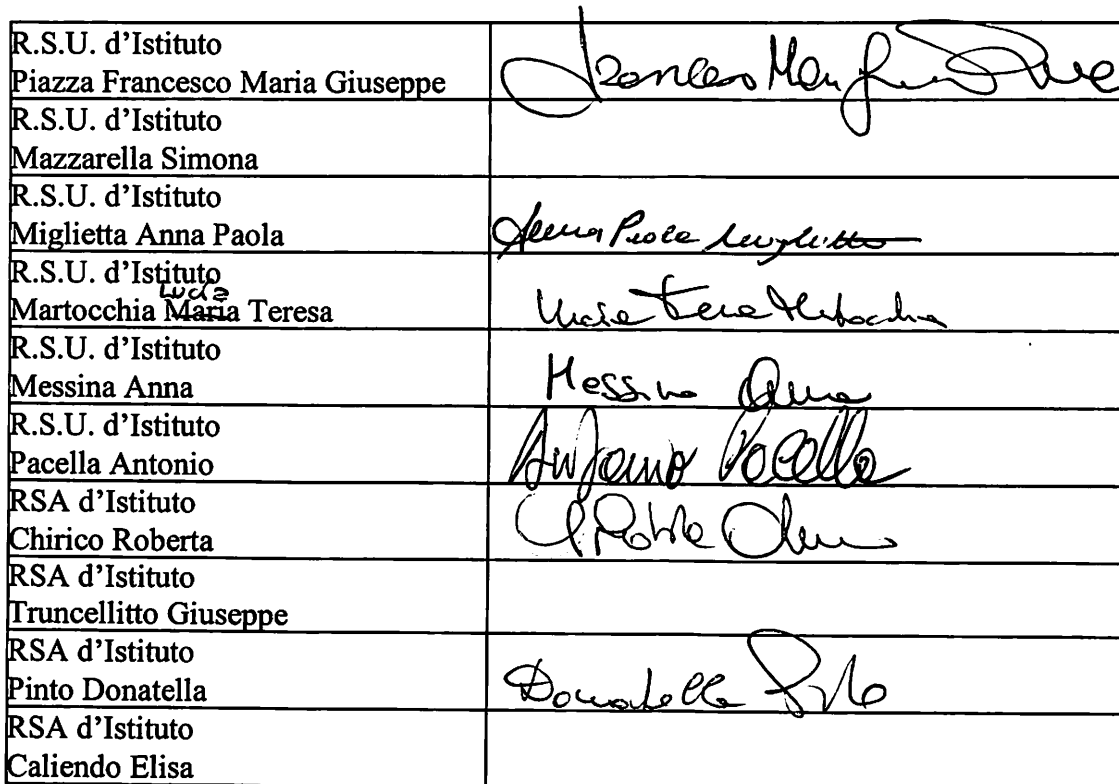 R.S.U. d'Istituto
Piazza Francesco Maria Giuseppe
R.S.U. d'Istituto
Mazzarella Simona
R.S.U. d'Istituto
Miglietta Anna Paola
Anna Paola Miglietta
R.S.U. d'Istituto
Lucia
Martocchia Maria Teresa
R.S.U. d'Istituto
Messina Anna
Messina Anna
R.S.U. d'Istituto
Pacella Antonio
Antonio Pacella
RSA d'Istituto
Chirico Roberta
RSA d'Istituto
Truncellitto Giuseppe
RSA d'Istituto
Pinto Donatella
Donatella Pinto
RSA d'Istituto
Caliendo Elisa